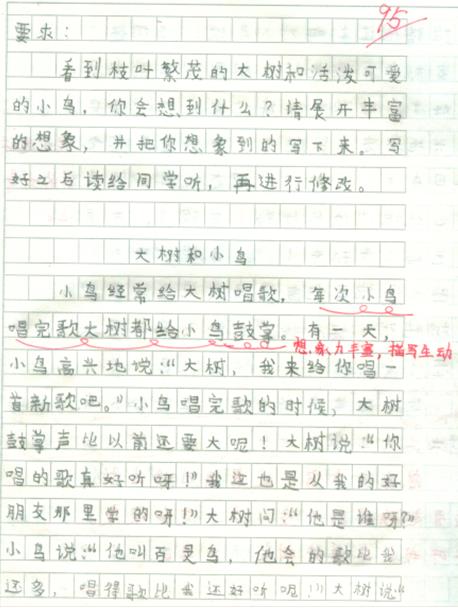 95
要求：
看到枝叶繁茂的大树和活泼可爱
的小鸟，你会想到什么？请展开丰富
的想象，并把你想象到的写下来。写
好之后读给同学听，再进行修改。
大树和小鸟
小鸟经常给大树唱歌，每次小鸟
唱完歌大树都给小鸟鼓掌。有一天，
想象力丰富，描写生动
小鸟高兴地说：“大树，我来给你唱一
首新歌吧。”小鸟唱完歌的时候，大树
鼓掌声比以前还要大呢！大树说：“你
唱的歌真好听呀！”我这也是从我的好
朋友那里学的呀！”大树问：“他是谁呀？”
小鸟说：“他叫百灵鸟，他会的歌比我
还多，唱得歌比我还好听呢！”大树说“